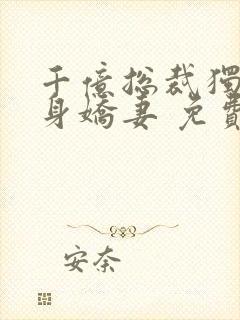 千億总裁獨
身嬌妻 免費
安奈